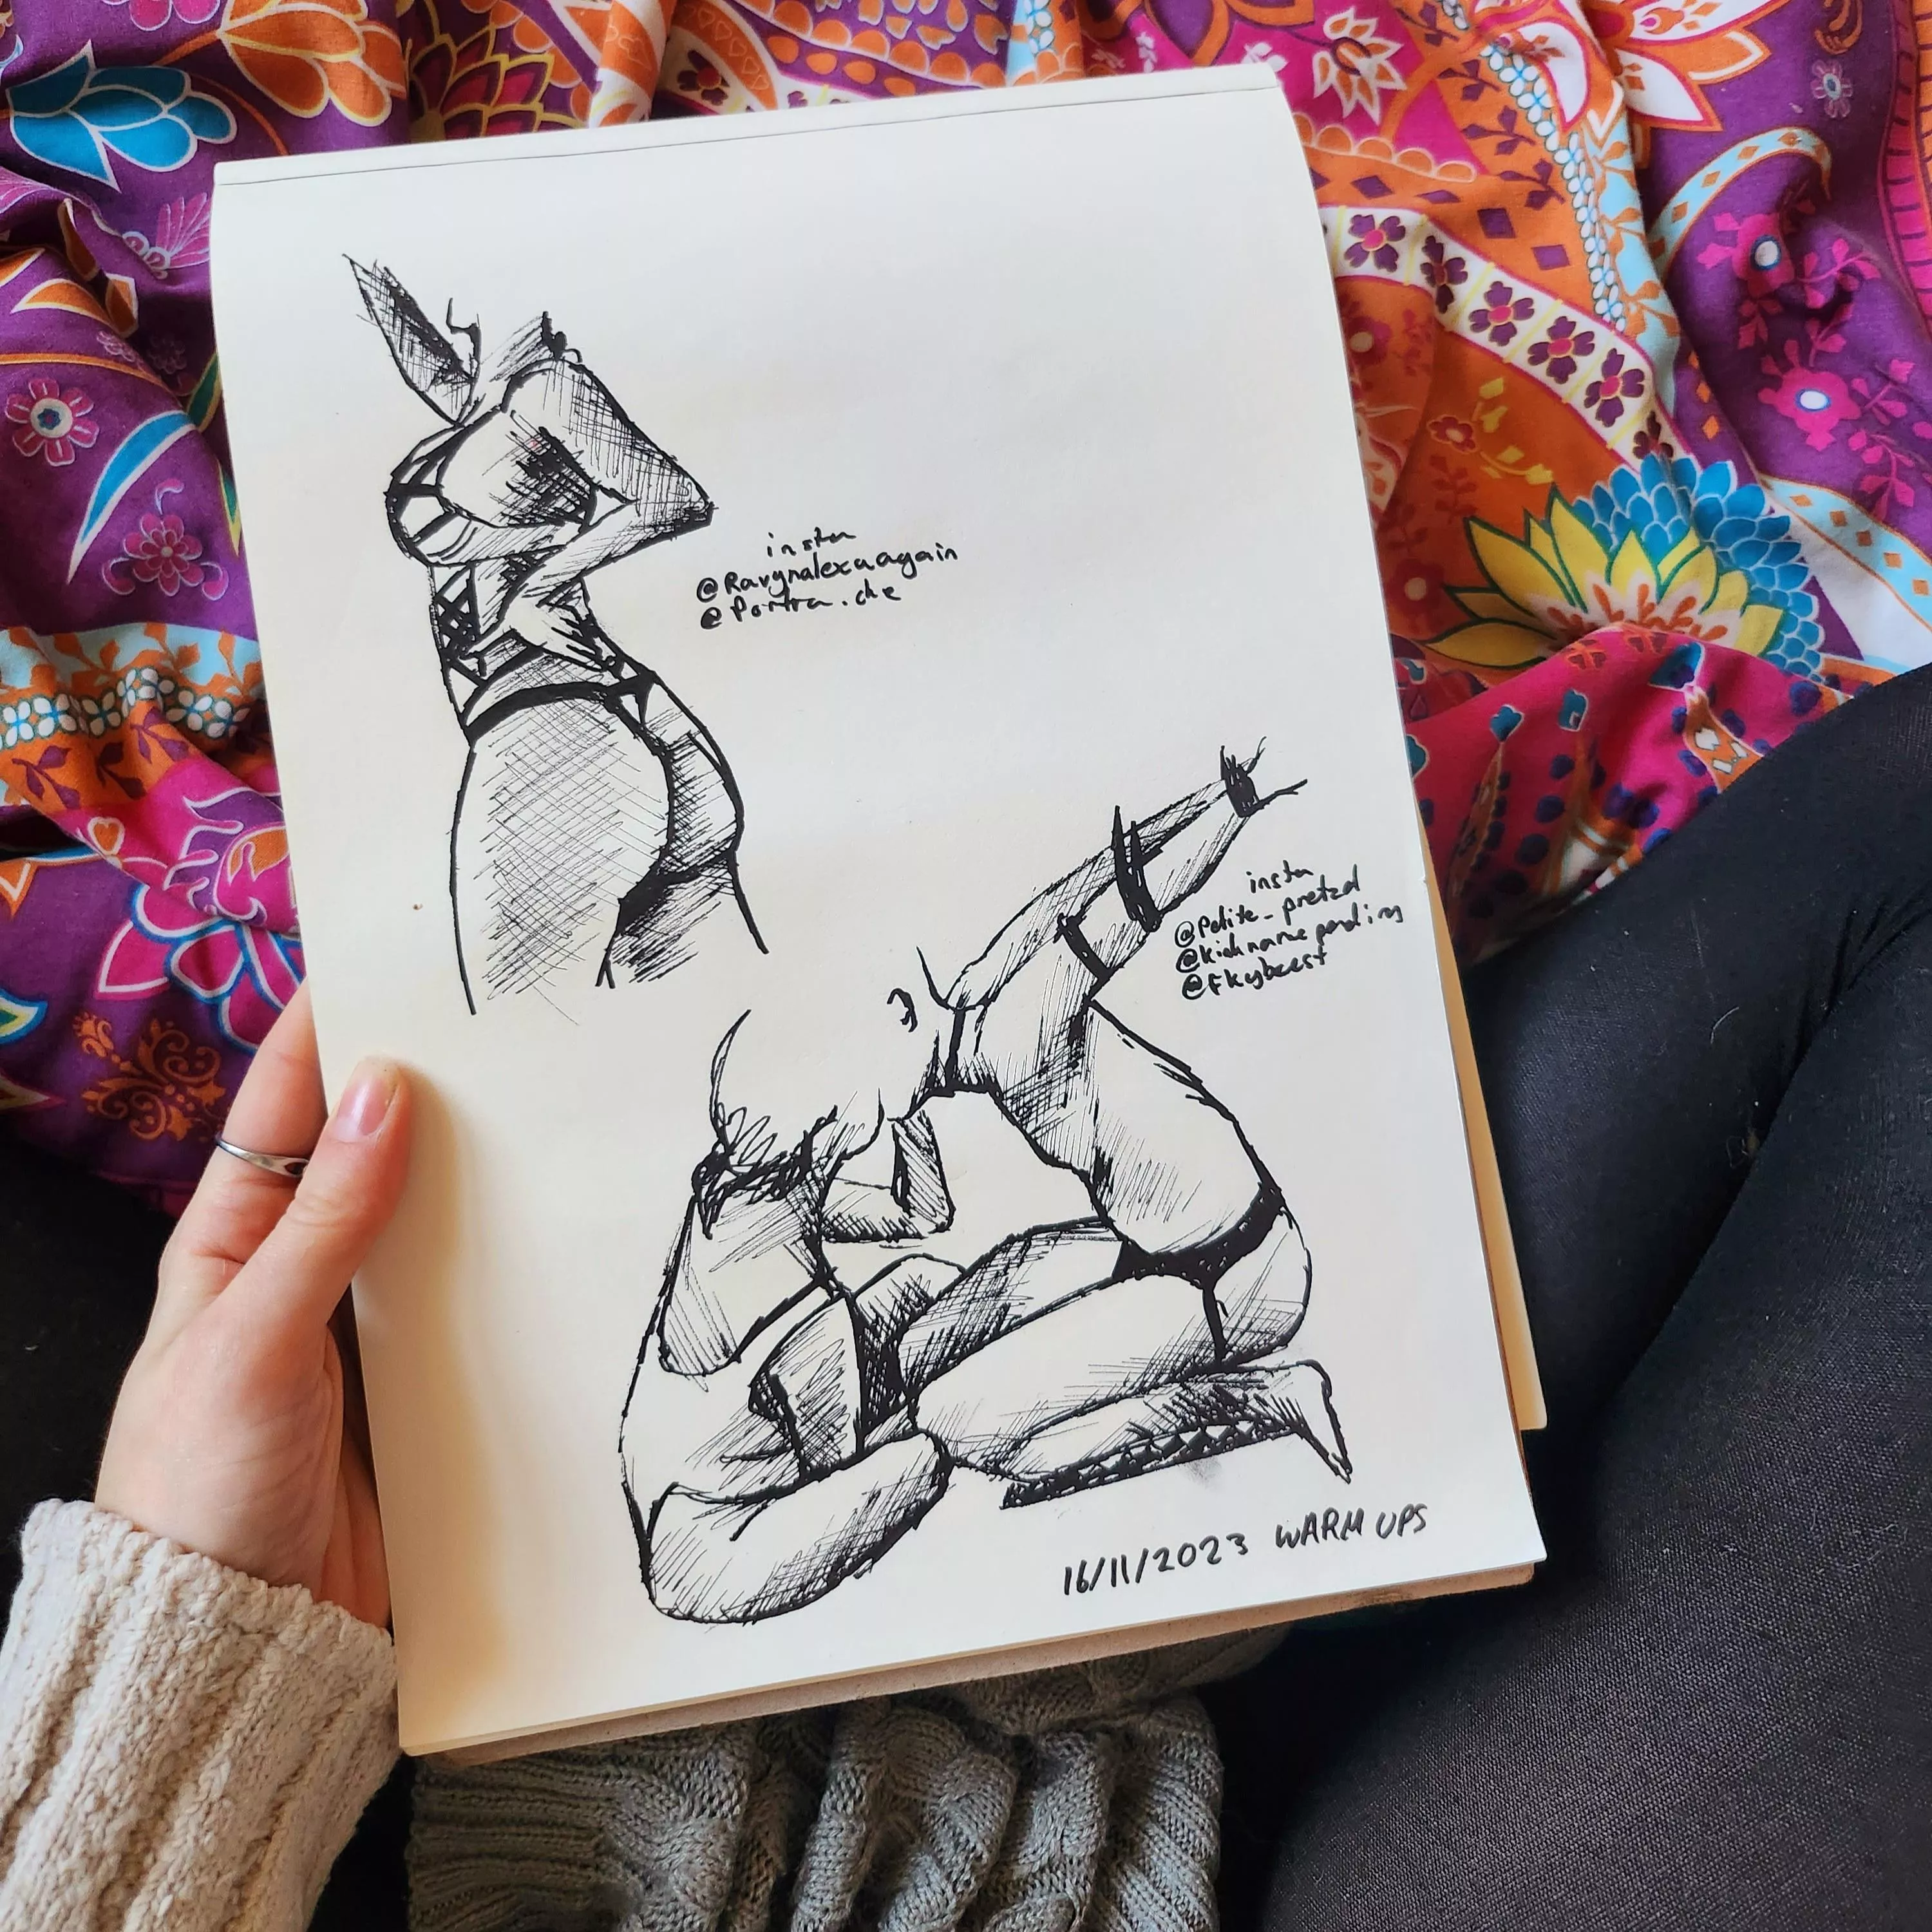 insta
@Ravynalexaagain
@Portra.che
insta
@Polite_pretzel
@kidnamepending
@fkybeest
16/11/2023 WARM UPS